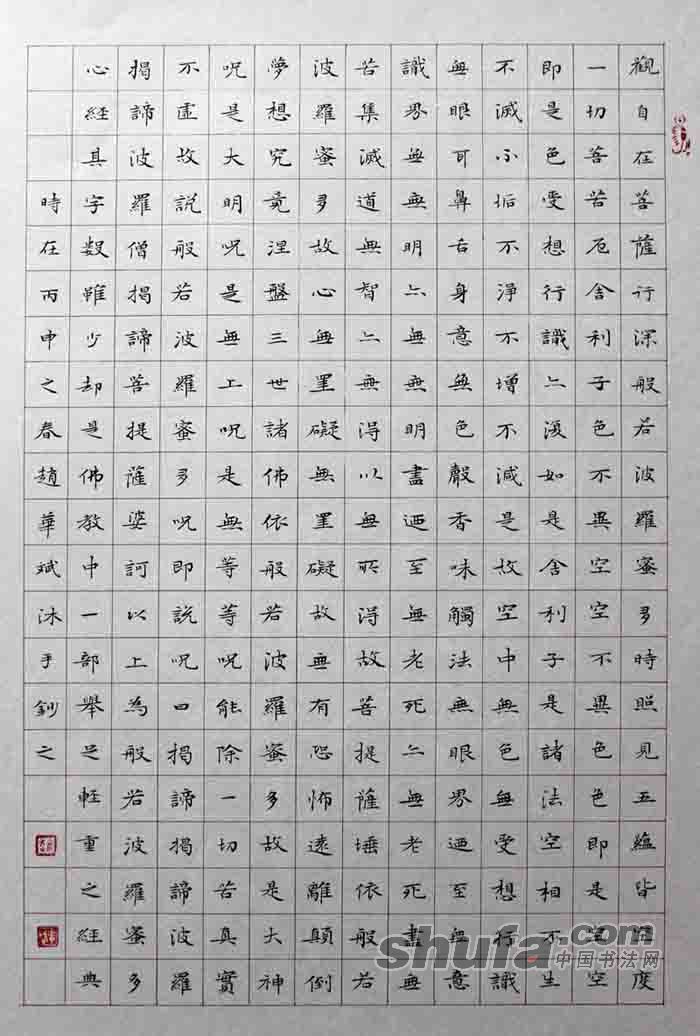 觀自在菩薩行深般若波羅蜜多時照見五蘊皆空度
一切善苦厄舍利子色不異空空不異色色即是空空
即是色受想行識亦復如是舍利子是諸法空相不生
不滅不垢不淨不增不減是故空中無色無受想行識
無眼耳鼻舌身意無色聲香味觸法無眼界迺至無意
識界無無明亦無無明盡迺至無老死亦無老死盡無
苦集滅道無智亦無得以無所得故菩提薩埵依般若
波羅蜜多故心無罣礙無罣礙故無有恐怖遠離顛倒
夢想究竟涅盤三世諸佛依般若波羅蜜多故是大神
呪是大明呪是無上呪是無等等呪能除一切苦真實
不虛故說般若波羅蜜多呪即說呪曰揭諦揭諦波羅
揭諦波羅僧揭諦菩提薩婆訶以上為般若波羅蜜多
心經其字數雖少却是佛教中一部舉足輕重之經典
時在丙申之春趙華斌沐手鈔之
shufa.com
中国书法网